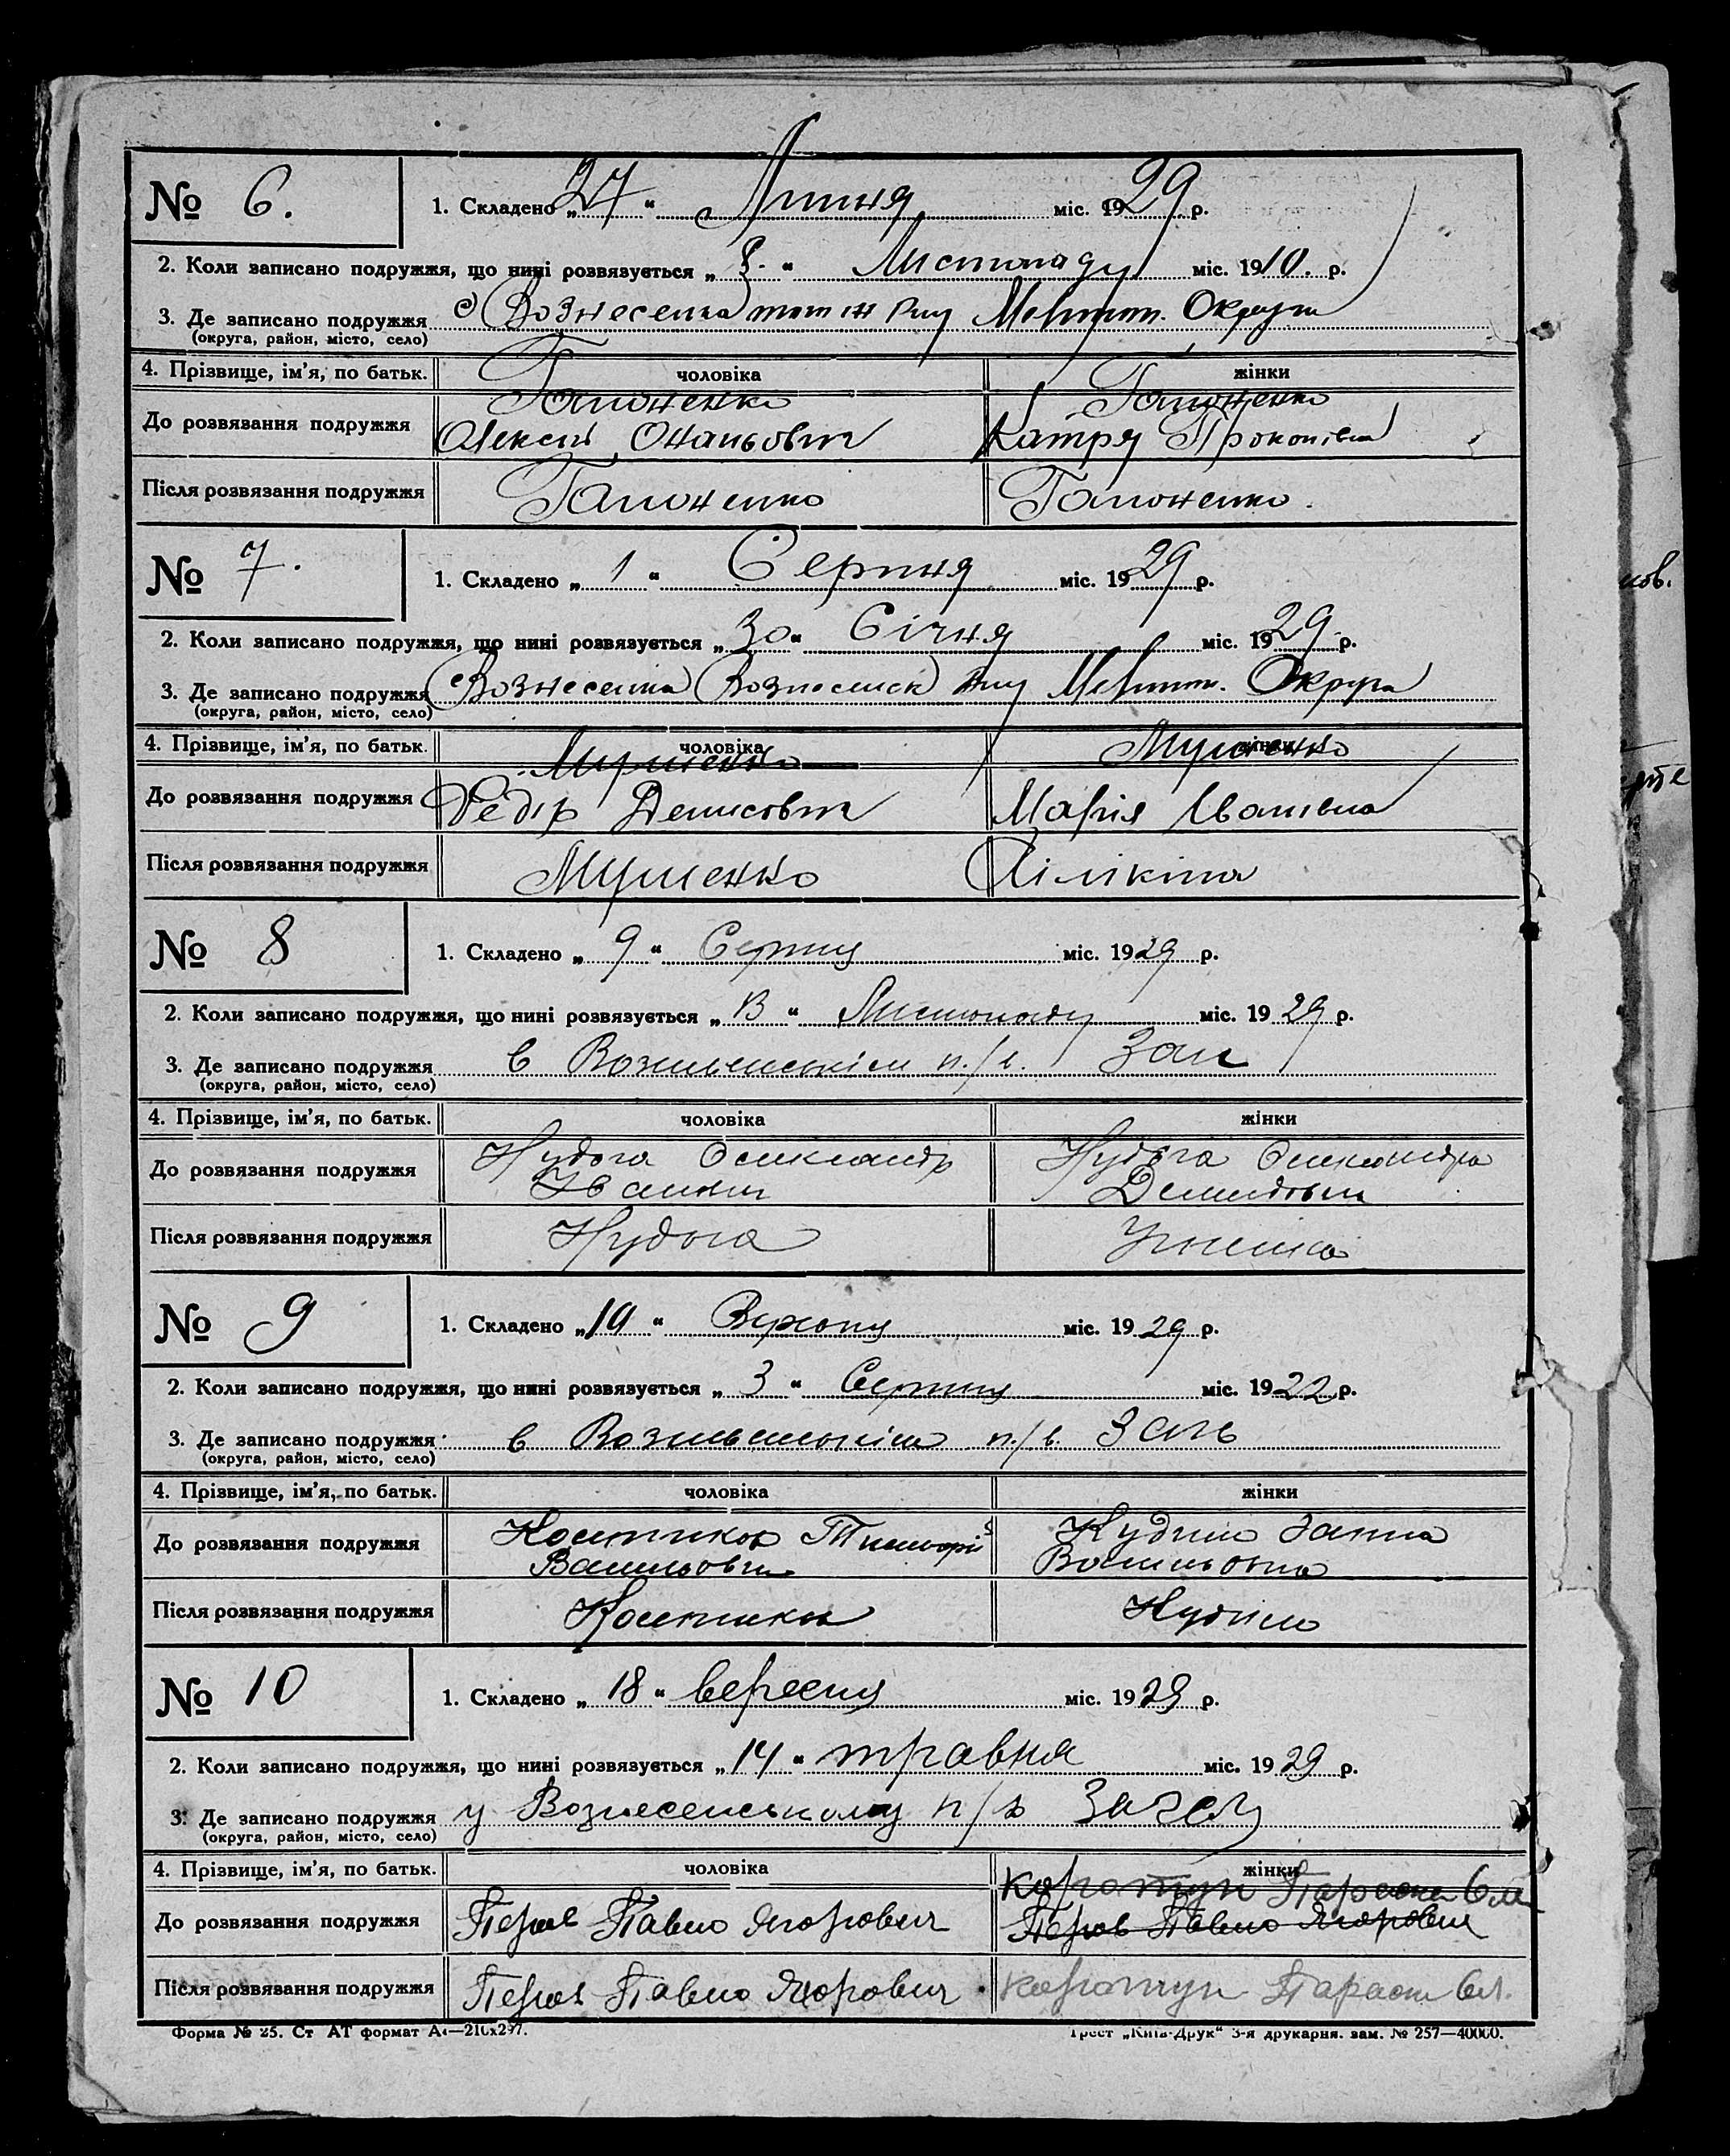 № 6. 1. Складено „27“ Липня міс. 1929 р.
2. Коли записано подружжя, що нині розвязується „8.“ Листопаду міс. 1910. р.
3. Де записано подружжя с) Вознесенка тот ж Р-ну Меліт. Округи
(округа, район, місто, село)
4. Прізвище, ім'я, по батьк. чоловіка жінки
Гапоненко Гапоненко
До розвязання подружжя Олексій Опанасович Катря Прокопівна
Після розвязання подружжя Гапоненко Гапоненко.
№ 7. 1. Складено „1“ Серпня міс. 1929 р.
2. Коли записано подружжя, що нині розвязується „30“ Січня міс. 1929. р.
3. Де записано подружжя Вознесенка Р-ну Меліт. Округа
(округа, район, місто, село)
4. Прізвище, ім'я, по батьк. чоловіка жінки
До розвязання подружжя Федір Денисович Марія Іванівна
Після розвязання подружжя
№ 8 1. Складено „9“ Серпня міс. 1929 р.
2. Коли записано подружжя, що нині розвязується „13“ Листопаду міс. 1929 р.
3. Де записано подружжя в Вознесенськім п/в. Заг
(округа, район, місто, село)
4. Прізвище, ім'я, по батьк. чоловіка жінки
До розвязання подружжя Нудьга Олександр Нудьга Олександра
Іванович Демидовна
Після розвязання подружжя Нудьга
№ 9 1. Складено „10“ Вересня міс. 1929 р.
2. Коли записано подружжя, що нині розвязується „3“ Серпня міс. 1922 р.
3. Де записано подружжя в Вознесенськім п/в. Загс
(округа, район, місто, село)
4. Прізвище, ім'я, по батьк. чоловіка жінки
До розвязання подружжя Тимофій Ганна
Васильович Васильовна
Після розвязання подружжя
№ 10 1. Складено „18“ вересня міс. 1929 р.
2. Коли записано подружжя, що нині розвязується „14“ травня міс. 1929 р.
3. Де записано подружжя у Вознесенському п/в Загсу
(округа, район, місто, село)
4. Прізвище, ім'я, по батьк. чоловіка жінки
Коротун Параска
До розвязання подружжя Павло Ягорович Павло Ягорович
Після розвязання подружжя Павло Ягорович Коротун Параск
Форма № 25. Ст АТ формат А4—210х297. Трест „Київ-Друк“ 3-я друкарня. зам. № 257—40000.